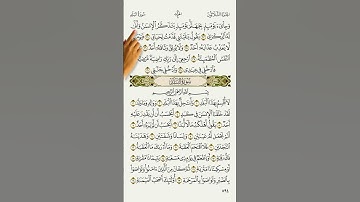 الجزء الثلاثون سورة الفجر
وَجِاْيٓءَ يَوْمَئِذٍۭ بِجَهَنَّمَ يَوْمَئِذٍ يَتَذَكَّرُ ٱلْإِنسَٰنُ وَأَنَّىٰ
يَقُولُ يَٰلَيْتَنِى قَدَّمْتُ لِحَيَاتِى ۝ فَيَوْمَئِذٍ
لَّا يُعَذِّبُ عَذَابَهُۥٓ أَحَدٌ ۝ وَلَا يُوثِقُ وَثَاقَهُۥٓ أَحَدٌ ۝ يَٰٓأَيَّتُهَا
ٱلنَّفْسُ ٱلْمُطْمَئِنَّةُ ۝ ٱرْجِعِىٓ إِلَىٰ رَبِّكِ رَاضِيَةً مَّرْضِيَّةً ۝
فَٱدْخُلِى فِى عِبَٰدِى ۝ وَٱدْخُلِى جَنَّتِى ۝
سُورَةُ البَلَدِ
بِسْمِ ٱللَّهِ ٱلرَّحْمَٰنِ ٱلرَّحِيمِ
لَآ أُقْسِمُ بِهَٰذَا ٱلْبَلَدِ ۝ وَأَنتَ حِلٌّۢ بِهَٰذَا ٱلْبَلَدِ ۝ وَوَالِدٍ وَمَا وَلَدَ ۝
لَقَدْ خَلَقْنَا ٱلْإِنسَٰنَ فِى كَبَدٍ ۝ أَيَحْسَبُ أَن لَّن يَقْدِرَ عَلَيْهِ
أَحَدٌ ۝ يَقُولُ أَهْلَكْتُ مَالًا لُّبَدًا ۝ أَيَحْسَبُ أَن لَّمْ يَرَهُۥٓ أَحَدٌ ۝
أَلَمْ نَجْعَل لَّهُۥ عَيْنَيْنِ ۝ وَلِسَانًا وَشَفَتَيْنِ ۝ وَهَدَيْنَٰهُ ٱلنَّجْدَيْنِ ۝
فَلَا ٱقْتَحَمَ ٱلْعَقَبَةَ ۝ وَمَآ أَدْرَىٰكَ مَا ٱلْعَقَبَةُ ۝ فَكُّ رَقَبَةٍ ۝
أَوْ إِطْعَٰمٌ فِى يَوْمٍ ذِى مَسْغَبَةٍ ۝ يَتِيمًا ذَا مَقْرَبَةٍ ۝
أَوْ مِسْكِينًا ذَا مَتْرَبَةٍ ۝ ثُمَّ كَانَ مِنَ ٱلَّذِينَ ءَامَنُوا۟ وَتَوَاصَوْا۟
بِٱلصَّبْرِ وَتَوَاصَوْا۟ بِٱلْمَرْحَمَةِ ۝ أُو۟لَٰٓئِكَ أَصْحَٰبُ ٱلْمَيْمَنَةِ ۝
٥٩٤